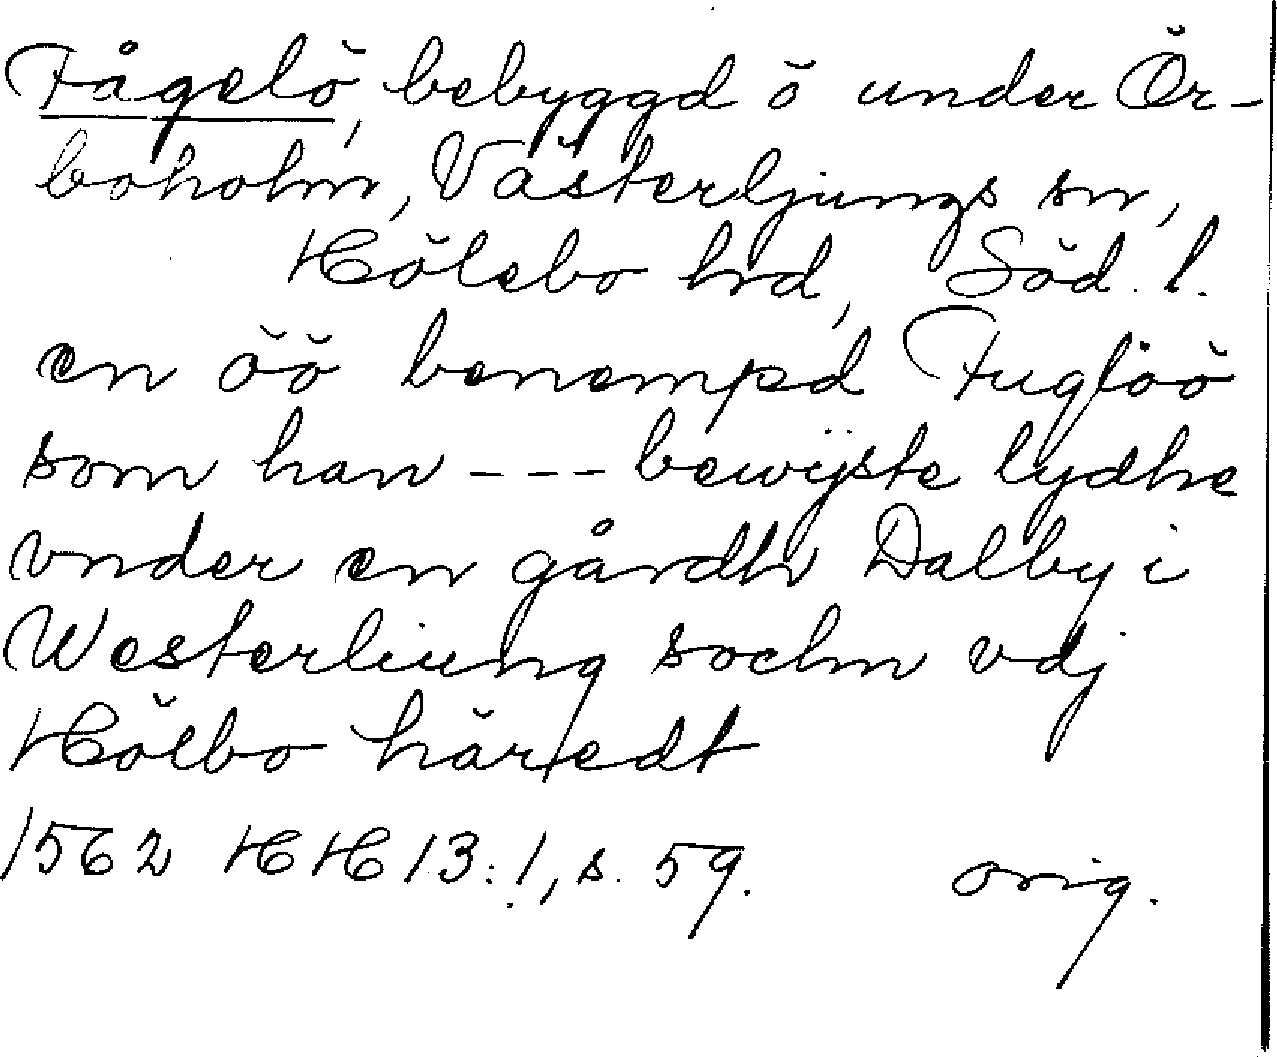 Fågelö, bebyggd ö under Ör-
boholm, Västerljungs sn,
Hölebo hrd, Söd. l.
en öö benempd Fuglöö
som han --- bewÿste lydhe
vnder en gårdh Dalby i
Westerliung sochn vdj
Hölbo häredt
1562 HH 13:1, s. 59. orig.